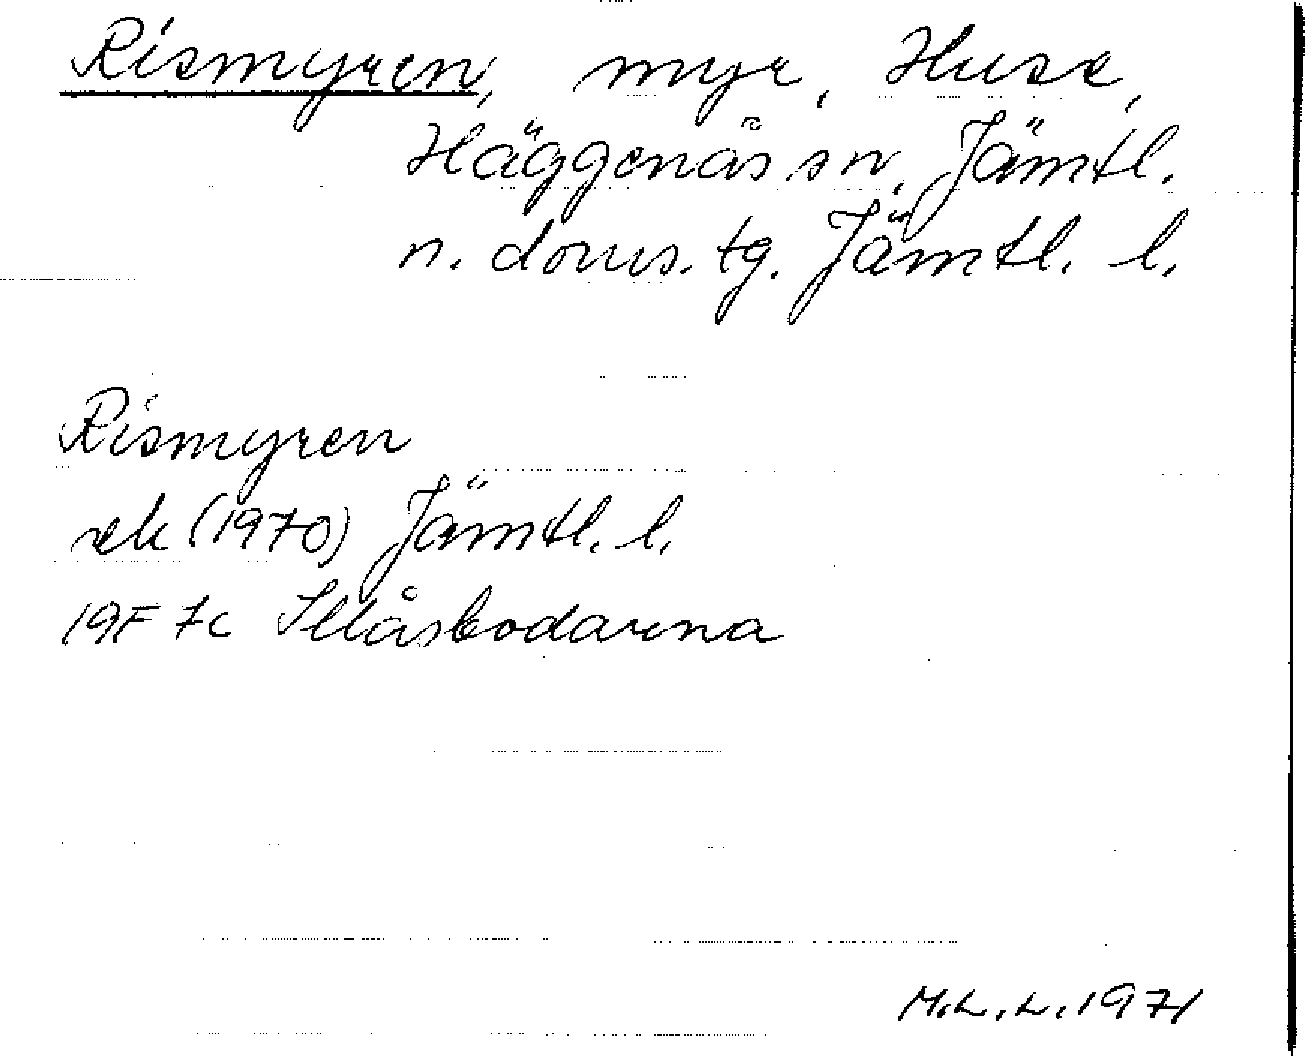 Rismyren, myr, Huse,
Häggenås sn, Jämtl.
n. doms. tg. Jämtl. l.
Rismyren
ek (1970) Jämtl. l.
19F 7c Illåsbodarna
M.L.L. 1971